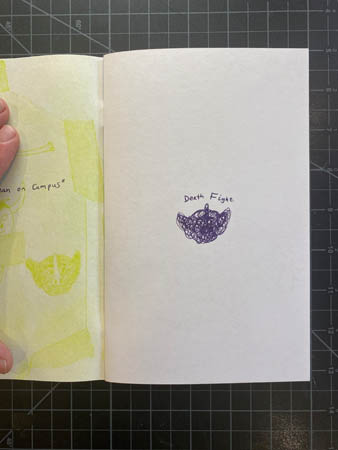 an on Campus"
Death Fight